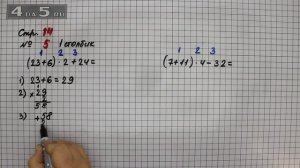 4 на 5.ru
Стр. 14
№ 5 1 столбик
1 2 3
(23+6) · 2 + 24 =
1) 23+6 = 29
2) × 29
2
58
3) + 58
1 2 3
(7+11) · 4 - 32 =